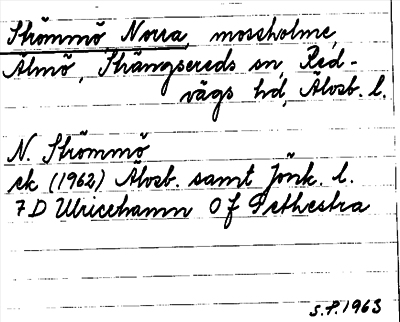 Strömmö Norra, mossholme,
Älmö, Strängsereds sn, Red-
vägs hd, Älvsb. l.
N. Strömmö
ek (1962) Älvsb. samt Jönk. l.
7D Ulricehamn 0f
s.f. 1963